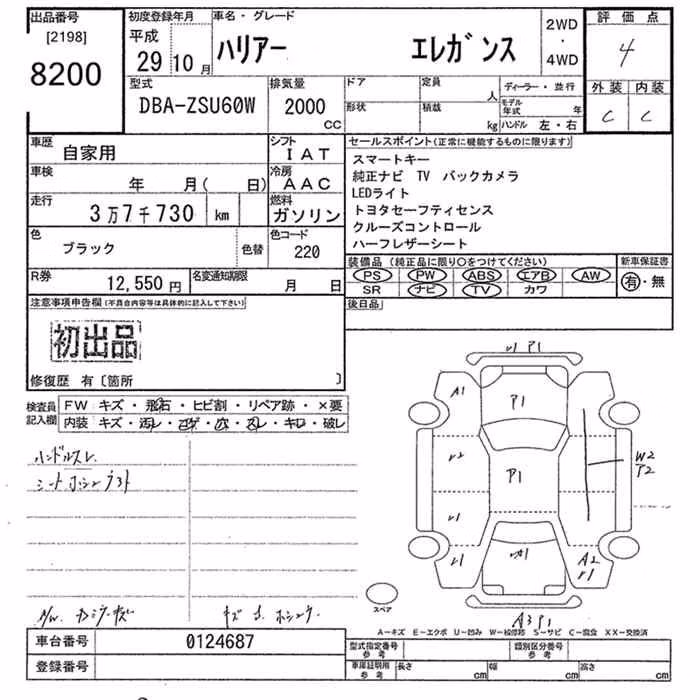 出品番号 初度登録年月 車名・グレード 2WD ・ 4WD 評価点
[2198] 平成
8200 29 10月 ハリアー エレガンス 4
型式 排気量 ドア 定員 人 ディーラー・並行 外装 内装
DBA-ZSU60W 2000 CC 形状 積載 kg モデル年式 年 C C
ハンドル 左・右
車歴 自家用 シフト IAT セールスポイント(正常に機能するものに限ります)
車検 年 月( 日) 冷房 AAC スマートキー
純正ナビ TV バックカメラ
走行 3万7千730 km 燃料 ガソリン LEDライト
トヨタセーフティセンス
色 ブラック 色替 色コード 220 クルーズコントロール
ハーフレザーシート
R券 12,550円 名変通知期限 月 日 装備品(純正品に限り○をつけてください) 新車保証書
PS PW ABS エアB AW 有・無
SR ナビ TV カワ
注意事項申告欄(不具合内容等は具体的に記入して下さい) 後日品
初出品
修復歴 有〔箇所 〕
検査員記入欄 FW キズ・飛石・ヒビ割・リペア跡・×要
内装 キズ・汚レ・コゲ・穴・スレ・キロ・破レ
ハンドルスレ
A1 P1 P1
W2
P2
A2
A3 P1
スペア
A-キズ E-エクボ U-凹み W-補修跡 S-サビ C-腐食 XX-交換済
車台番号 0124687 型式指定番号 参考 類別区分番号 参考
登録番号 車庫証明用 参考 長さ cm 幅 cm 高さ cm